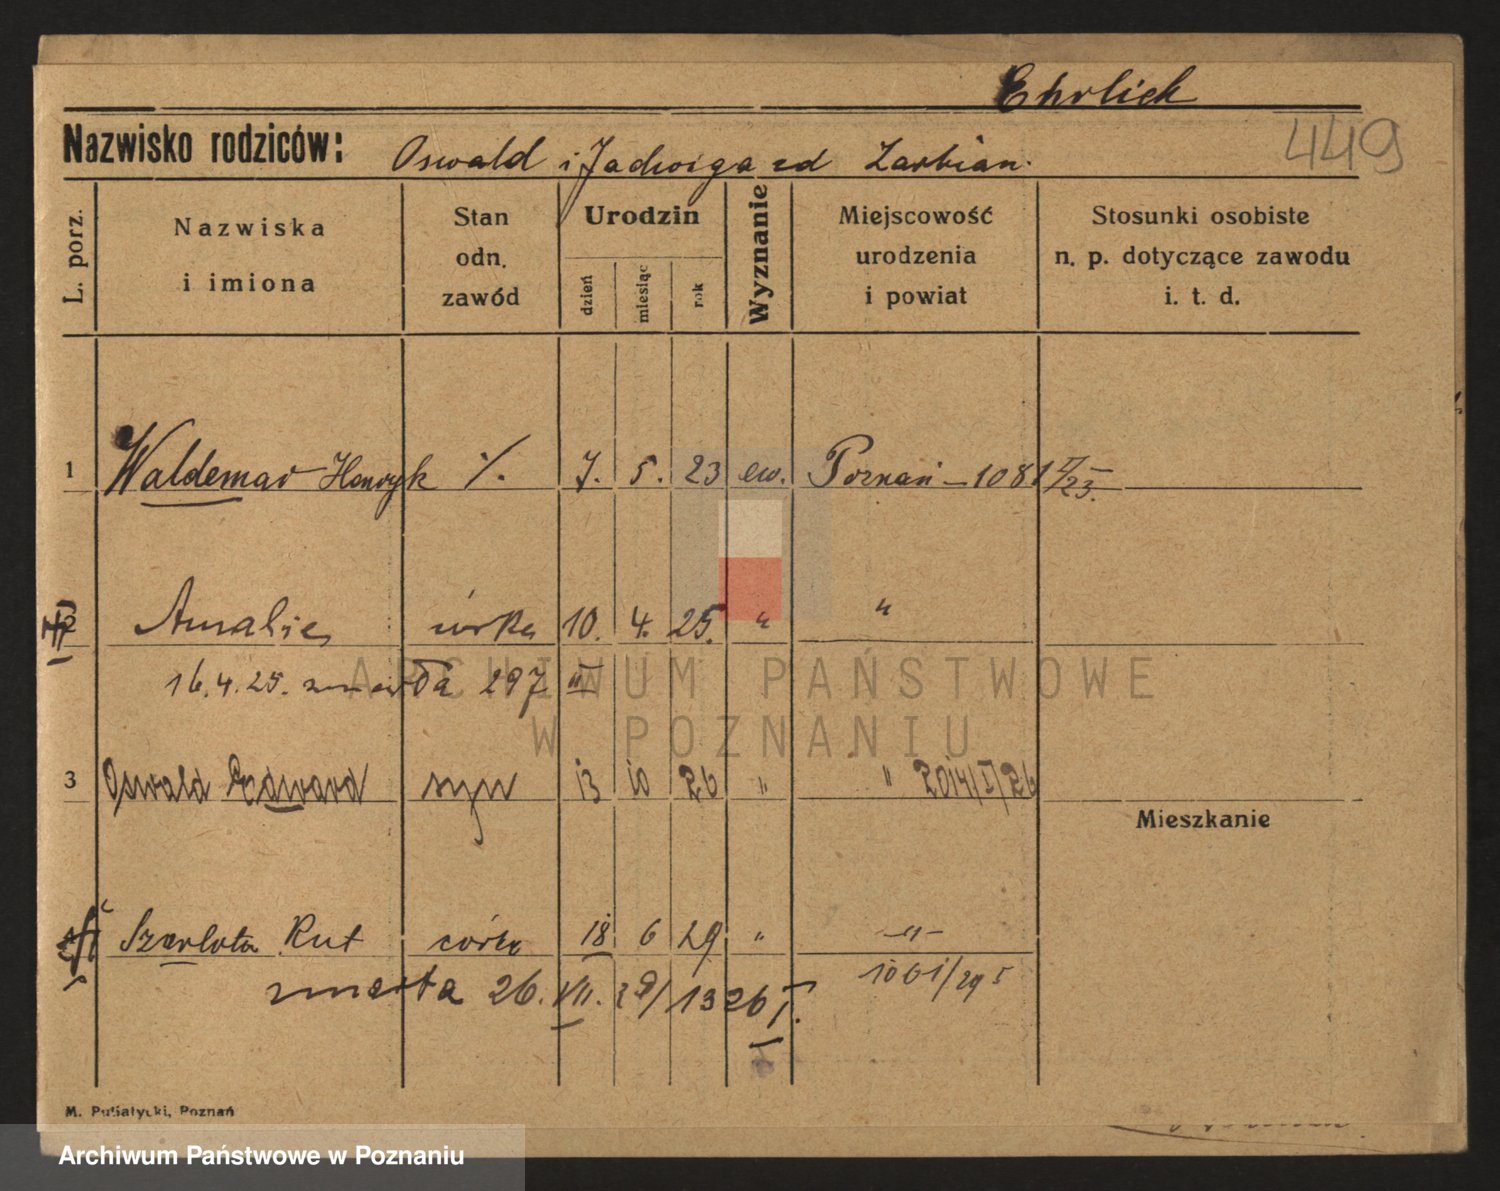 Ehrlich
449
Nazwisko rodziców: Oswald i Jadwiga zd Zarbian.
L. porz.
Nazwiska i imiona
Stan odn. zawód
Urodzin
dzień miesiąc rok
Wyznanie
Miejscowość urodzenia i powiat
Stosunki osobiste n. p. dotyczące zawodu i. t. d.
1 Waldemar Henryk ·/. 7. 5. 23 ew. Poznań – 1081 V/23.
2 Amalie córka 10. 4. 25. " "
16.4.25. zmarła 297 III
3 Oswald Edward syn 13 10 26 " " 2014/I/26
Mieszkanie
Szarlota Rut córka 18 6 29 " -"-
1061/29 5
zmarła 26. VII. 29/1326 I.
M. Pusiatycki, Poznań
ARCHIWUM PAŃSTWOWE
W POZNANIU
Archiwum Państwowe w Poznaniu